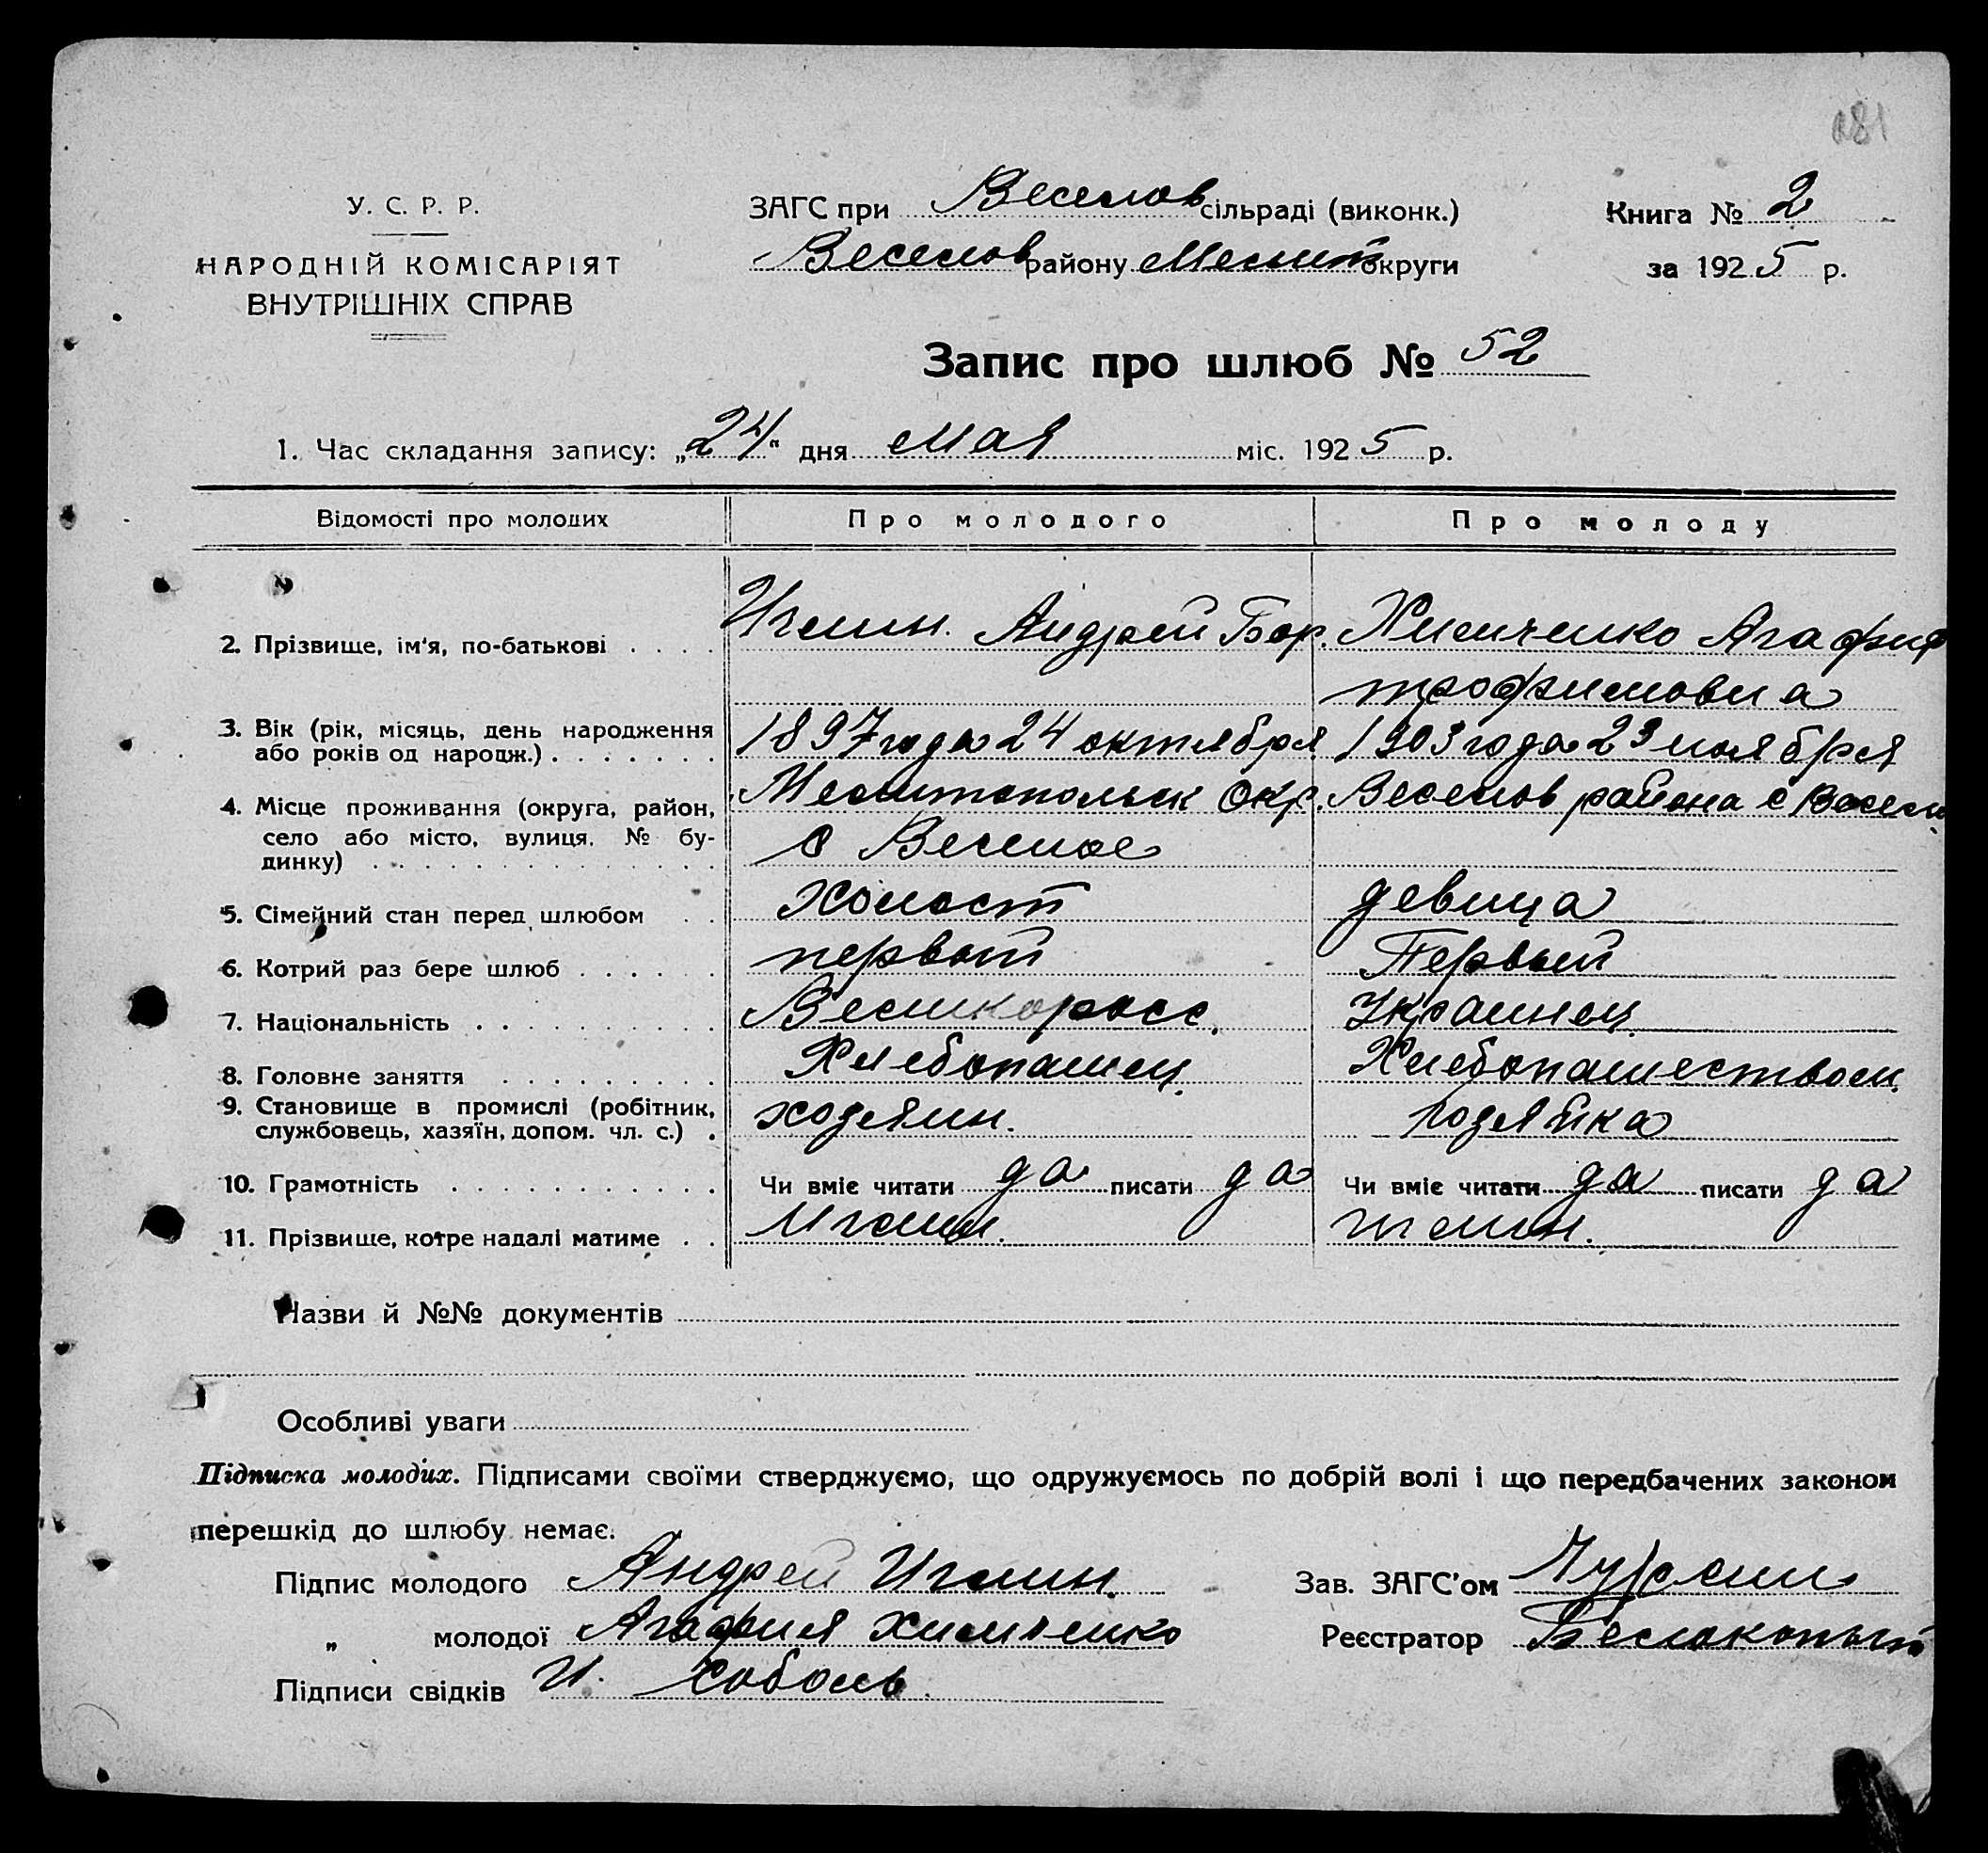 281
У. С. Р. Р.
НАРОДНІЙ КОМІСАРІЯТ
ВНУТРІШНІХ СПРАВ
ЗАГС при Веселов сільраді (виконк.)
Веселов району Мелит округи
Книга № 2
за 1925 р.
Запис про шлюб № 52
1. Час складання запису: „24" дня мая міс. 1925 р.
Відомості про молодих Про молодого Про молоду
2. Прізвище, ім'я, по-батькові . . . . Андрей Бор. Химченко Агафия
трофимовна
3. Вік (рік, місяць, день народження
або років од народж.) . . . . . . . 1897 года 24 октября 1903 года 23 ноября
4. Місце проживання (округа, район, Мелитопольск Окр. Веселов района с Весел
село або місто, вулиця, № бу-
динку) . . . . . . . . . . . . . с Веселое
5. Сімейний стан перед шлюбом . . холост девица
6. Котрий раз бере шлюб . . . . . . первый Первый
7. Національність . . . . . . . . . . Великоросс. Украинец.
8. Головне заняття . . . . . . . . . Хлебопашец. Хлебопашеством.
9. Становище в промислі (робітник,
службовець, хазяїн, допом. чл. с.) . хозяин. хозяйка
10. Грамотність . . . . . . . . . . . Чи вміє читати да писати да Чи вміє читати да писати да
11. Прізвище, котре надалі матиме . .
Назви й №№ документів
Особливі уваги
Підписка молодих. Підписами своїми стверджуємо, що одружуємось по добрій волі і що передбачених законом
перешкід до шлюбу немає.
Підпис молодого Андрей
„ молодої Агафия Химченко
Підписи свідків И. Соболь
Зав. ЗАГС'ом
Реєстратор